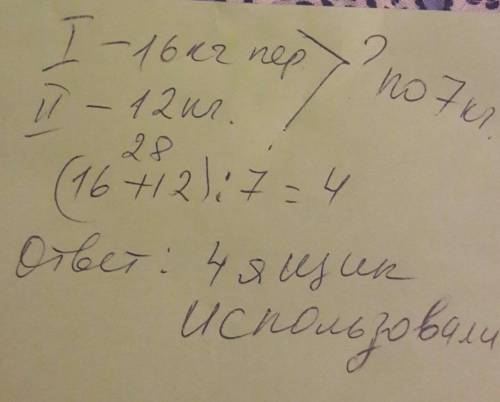 I – 16 кг пер. ?
II – 12 кг. по 7 кг.
28
(16+12):7 = 4
Ответ: 4 ящик
использовали